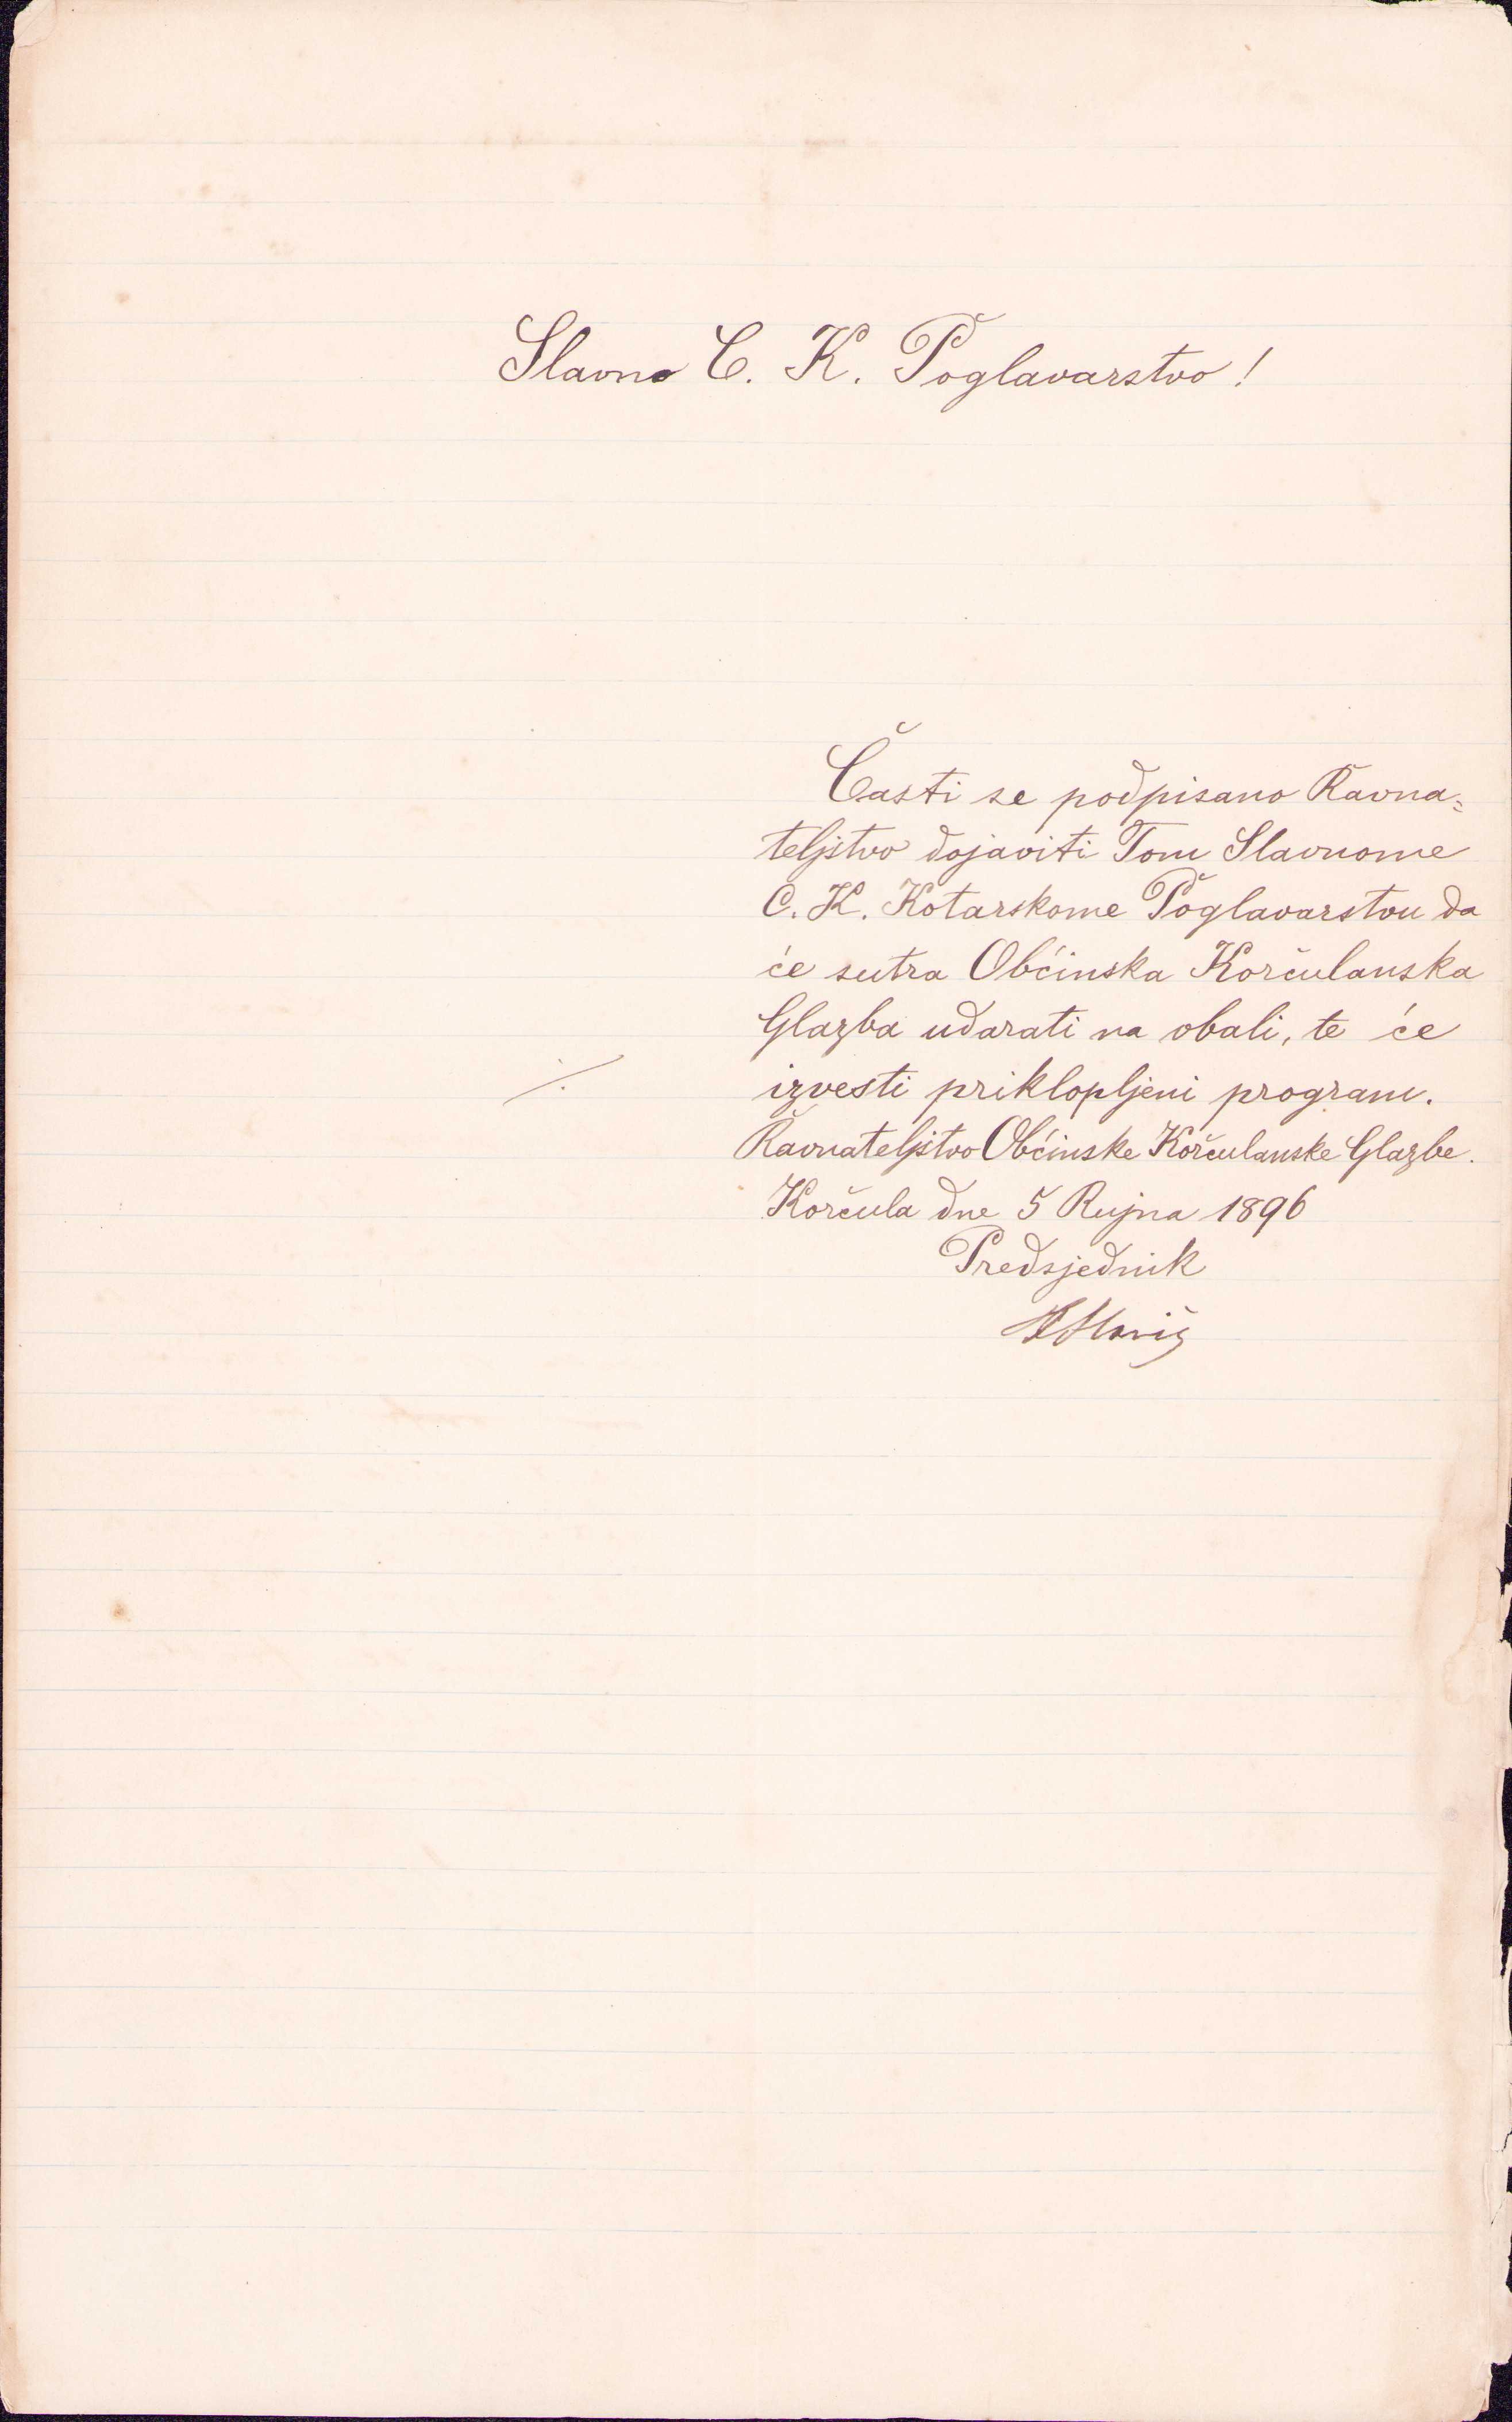 Slavno C. K. Poglavarstvo!
Časti se podpisano Ravna=
teljstvo dojaviti Tom Slavnome
C. K. Kotarskome Poglavarstvu da
će sutra Obćinska Korčulanska
Glazba udarati na obali, te će
./. izvesti priklopljeni program.
Ravnateljstvo Obćinske Korčulanske Glazbe.
Korčula dne 5 Rujna 1896
Predsjednik